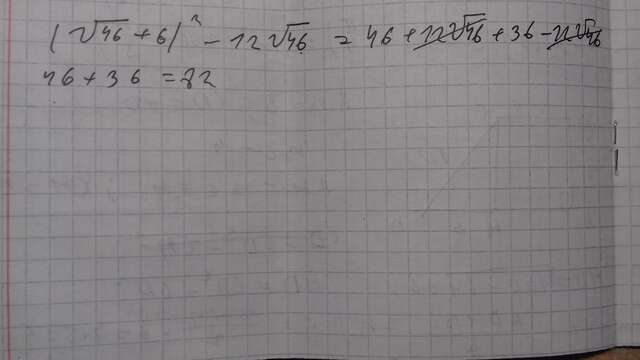 (√46 + 6)² - 12√46 = 46 + 12√46 + 36 - 12√46
46 + 36 = 82